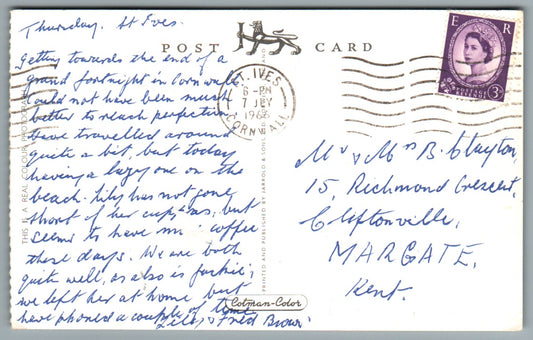 Thursday. St Ives.
Getting towards the end of a
grand fortnight in Cornwall
Could not have been much
better to reach perfection
have travelled around
quite a bit, but today
having a lazy one on the
beach. Lily has not gone
short of her cup/tea, but
seems to have more coffee
these days. We are both
quite well, as also is Jackie,
we left her at home but
have phoned a couple of times
Lily & Fred Brown
POST CARD
E R
POSTAGE REVENUE
3D
ST. IVES
6 - PM
7 JLY
CORNWALL
Mr & Mrs B. Clayton,
15, Richmond Crescent,
Cliftonville,
MARGATE,
Kent.
THIS IS A REAL COLOUR PHOTOGRAPH
PRINTED AND PUBLISHED BY JARROLD & SONS
Cotman-Color